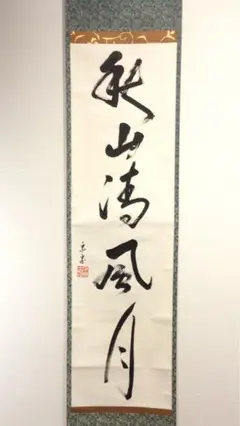 秋山清風月